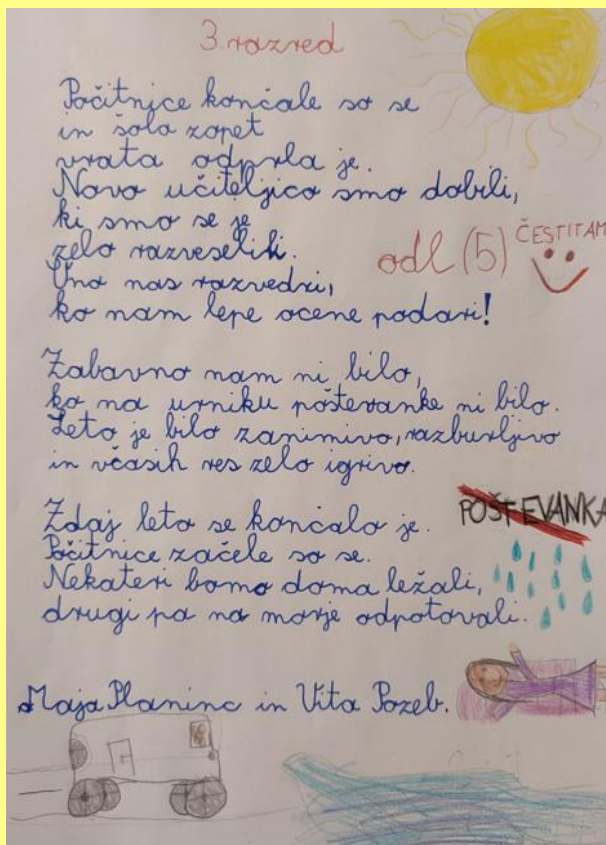 3. razred
Počitnice končale so se
in šola zopet
vrata odprla je.
Novo učiteljico smo dobili,
ki smo se je
zelo razveselili.
odl (5) ČESTITAM
Ona nas razvedri,
ko nam lepe ocene podari!
Zabavno nam ni bilo,
ko na urniku poštevanke ni bilo.
Leto je bilo zanimivo, razburljivo
in včasih res zelo igrivo.
Zdaj leto se končalo je.
POŠTEVANKA
Počitnice začele so se.
Nekateri bomo doma ležali,
drugi pa na morje odpotovali.
Maja Planinc in Vita Pozeb.